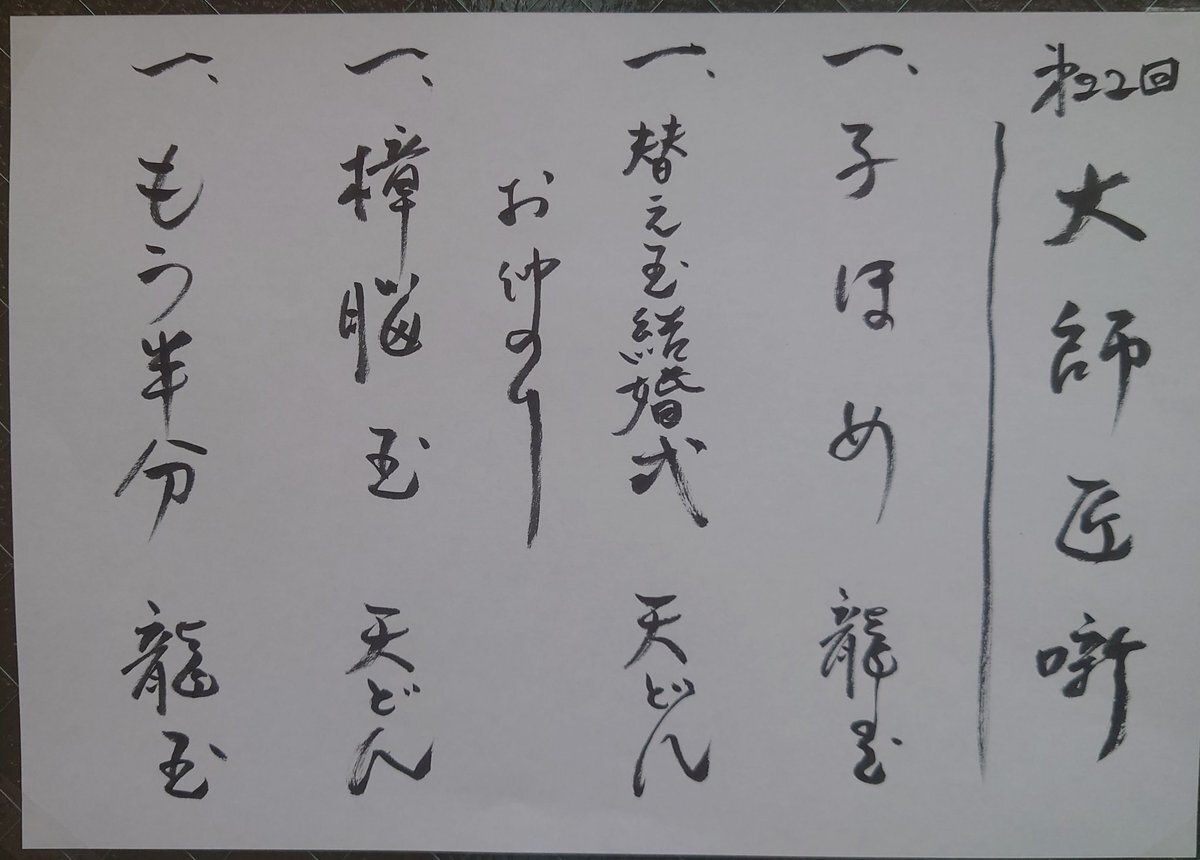 第22回
大師匠噺
一、子ほめ 龍玉
一、替え玉結婚式 天どん
お仲入り
一、樟脳玉 天どん
一、もう半分 龍玉